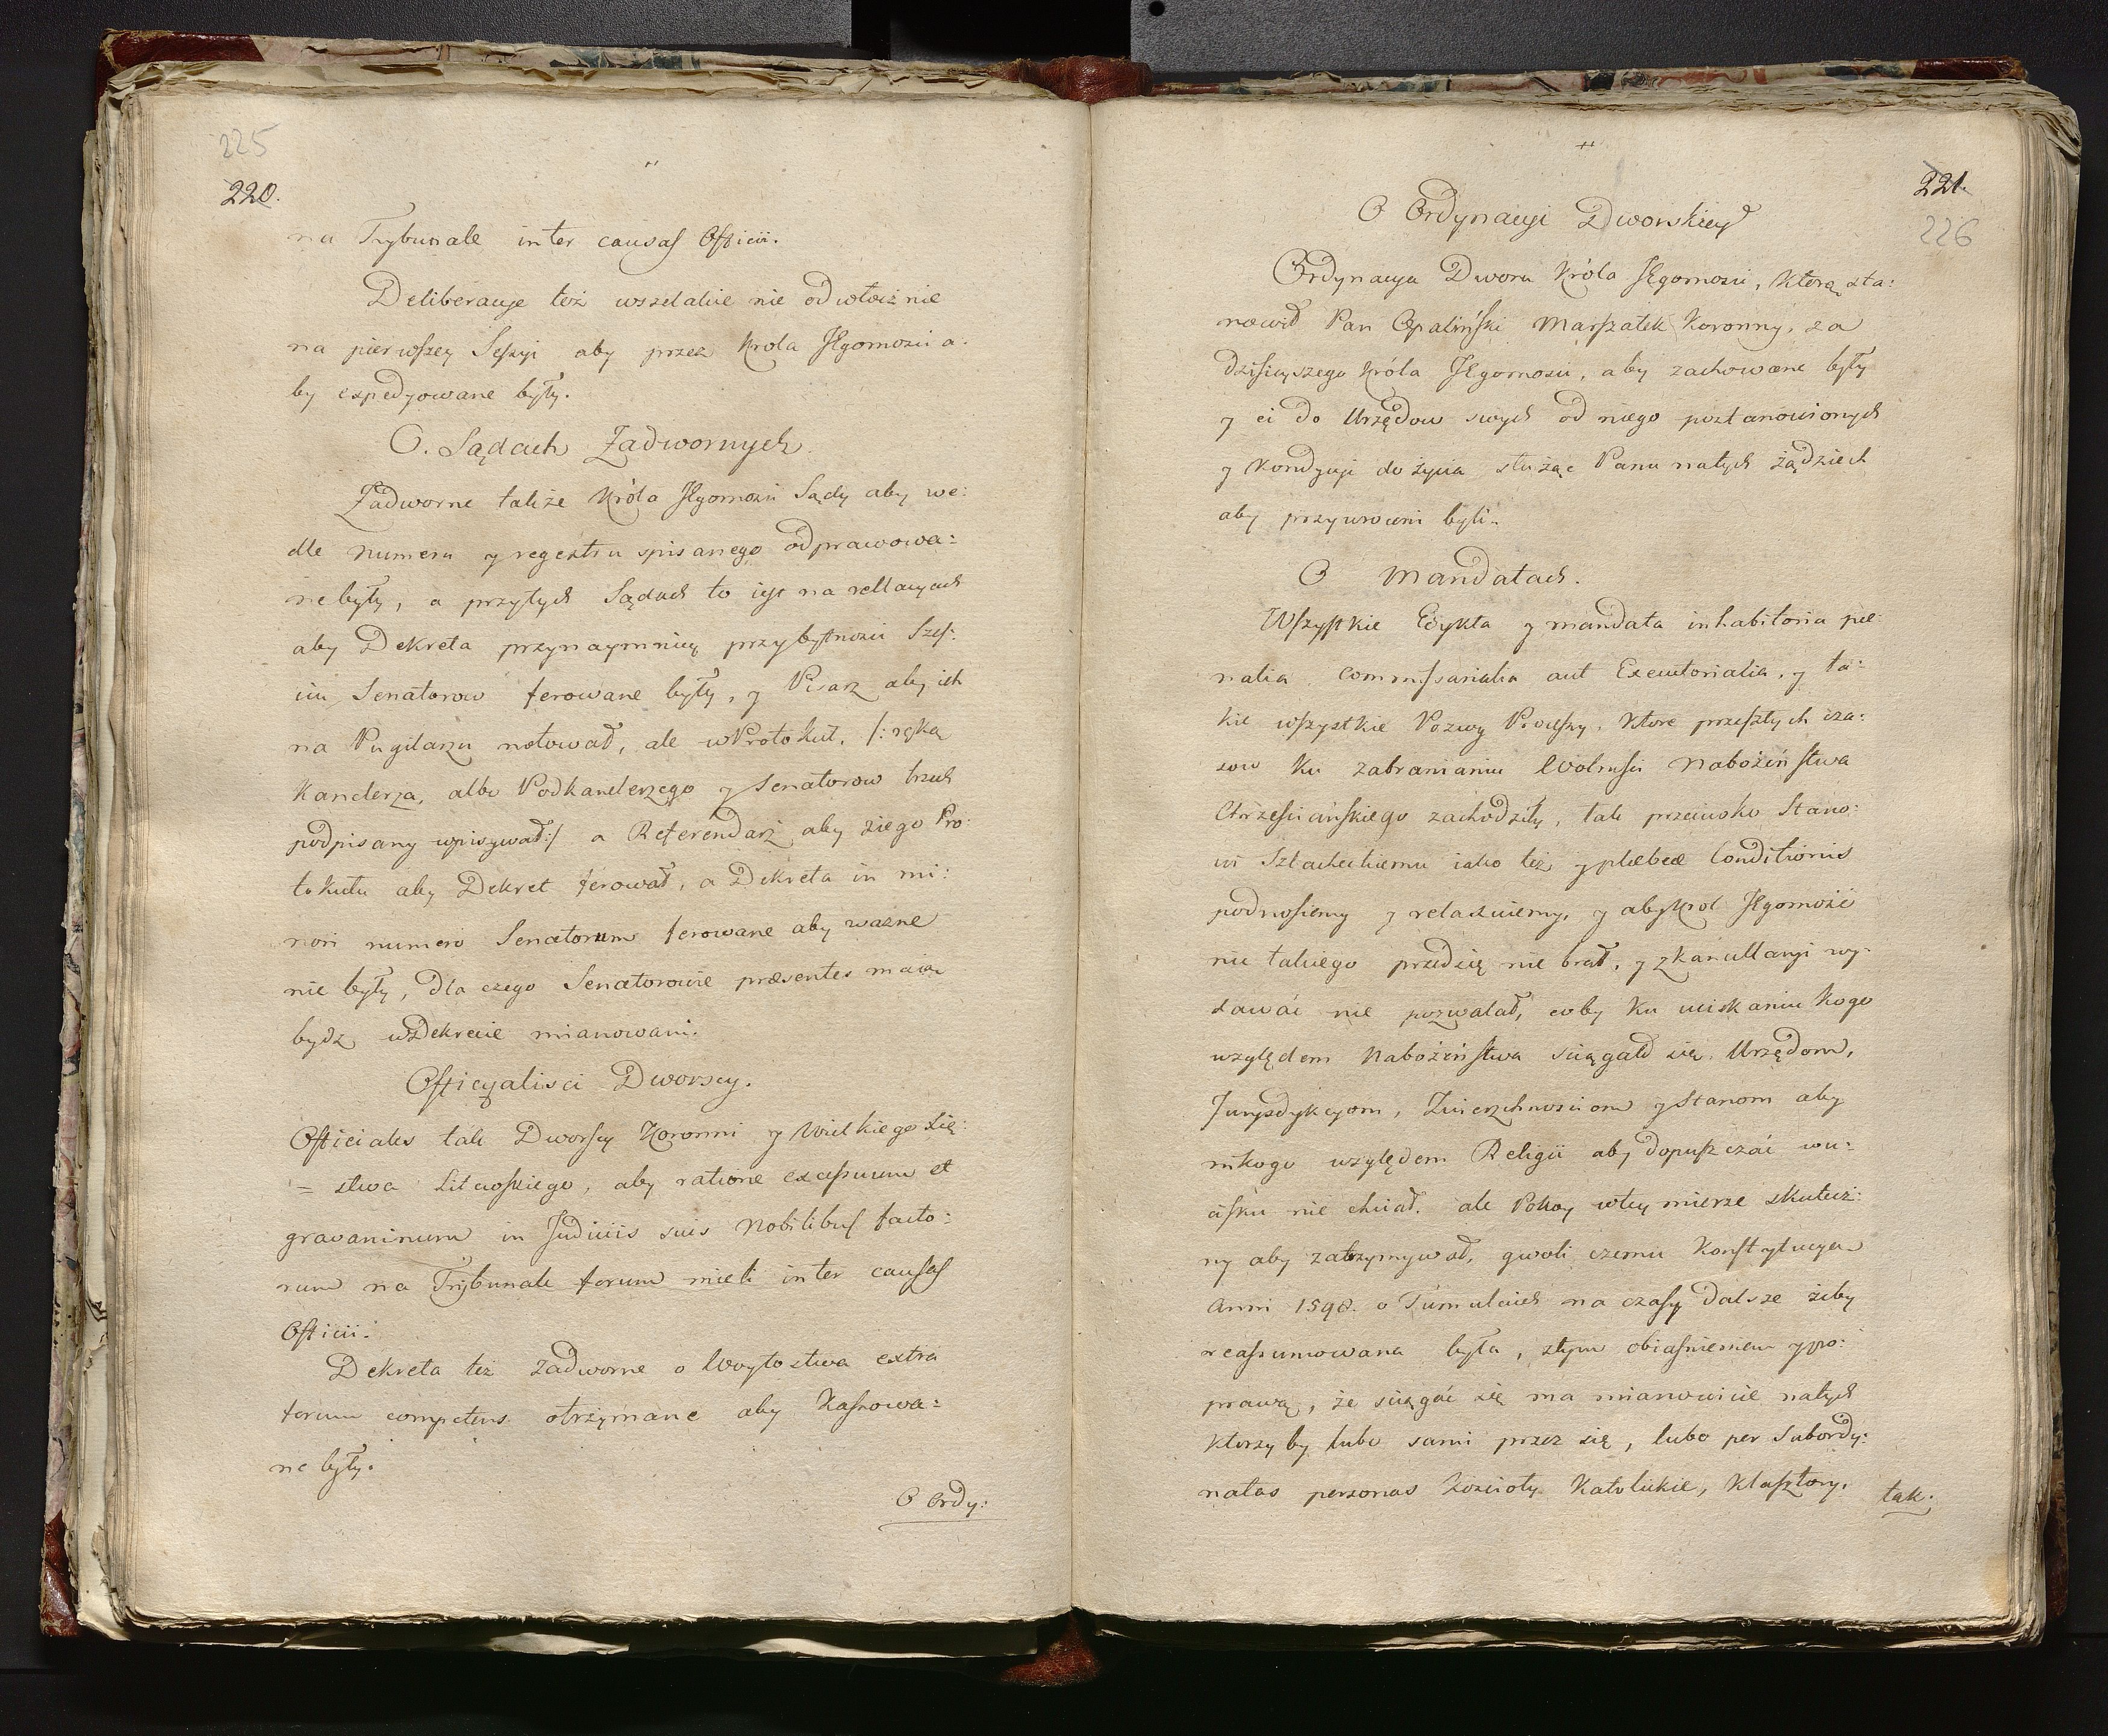 225
220.
na Trybunale inter causas Officii.
Deliberacye też wszelakie nie odwłocznie
na pierwszey Sessyi aby przez Krola JEgomosci a-
by expedyowane były.
O. Sądach Zadwornych
Zadworne takze Króla JEgomosci Sądy aby we:
dle numeru y regestru spisanego odprawowa:
ne były, a przytych Sądach to iest na rellacyach
aby Dekreta przynaymniey przy bytnosci Szes:
ciu Senatorow ferowane były, y Pisarz aby ich
na Pugilarzu notował, ale w Protokuł. /: ręką
Kanclerza, albo Podkanclerzego y Senatorow trzech
podpisany wpisywał :/ a Referendarz aby ziego Pro:
tokułu aby Dekret ferował, a Dekreta in mi:
nori numero Senatorum ferowane aby wazne
nie były, dla czego Senatorowie præsentes maią
bydz w Dekrecie mianowani.
Officyalisci Dworscy.
Officiales tak Dworscy Koronni y Wielkiego Xię:
= stwa Litewskiego, aby ratione excessuum et
gravaminum in Judiciis suis Nobilibus facto:
rum na Trybunale forum mieli inter causas
Officii.
Dekreta też zadworne o Woytostwa extra
forum competens otrzymane aby Kassowa:
ne były.
O Ordy:
221.
226
O Ordynacyi Dworskiey
Ordynacya Dworu Króla JEgomosci, którą sta:
nowił Pan Opaliński Marszałek Koronny, za
dzisieyszego Króla JEgomosci, aby zachowane były
y ci do Urzędow swych od niego postanowionych
y Kondycyi do życia służąc Panu natych żądziech
aby przywroceni byli.
O Mandatach.
Wszystkie Edykta y mandata inhabitoria poe:
nalia, commissarialia aut Executorialia, y ta:
kie wszystkie Pozwy Processy, Ktore przeszłych cza:
sow Ku zabranianiu Wolnosci Nabożeństwa
Chrzesciańskiego zachodziły, tak przeciwko Stano:
wi Szlacheckiemu iako też y plebeæ Conditionis
podnosiemy y relaxuiemy, y aby Krol JEgomość
nic takiego przedsię nie brał, y z Kancellaryi wy-
dawać nie pozwalał, coby Ku uciskaniu Kogo
względem Nabożeństwa sciągało się. Urzędom,
Jurysdykcyom, Zwierzchnosciom y Stanom aby
nikogo względem Religii aby dopuszczać wu:
cisku nie chciał. ale Pokoy wtey mierze skutecz:
ny aby zatrzymywał, gwoli czemu Konstytucya
Anni 1598. o Tumulciech na czasy dalsze żeby
reassumowana była, ztym obiasnieniem y po:
prawą, że sciągać się ma mianowicie natych
Ktorzy by lubo sami przez się, lubo per Subordy:
natas personas Koscioły Katolickie, Klasztory.
tak.